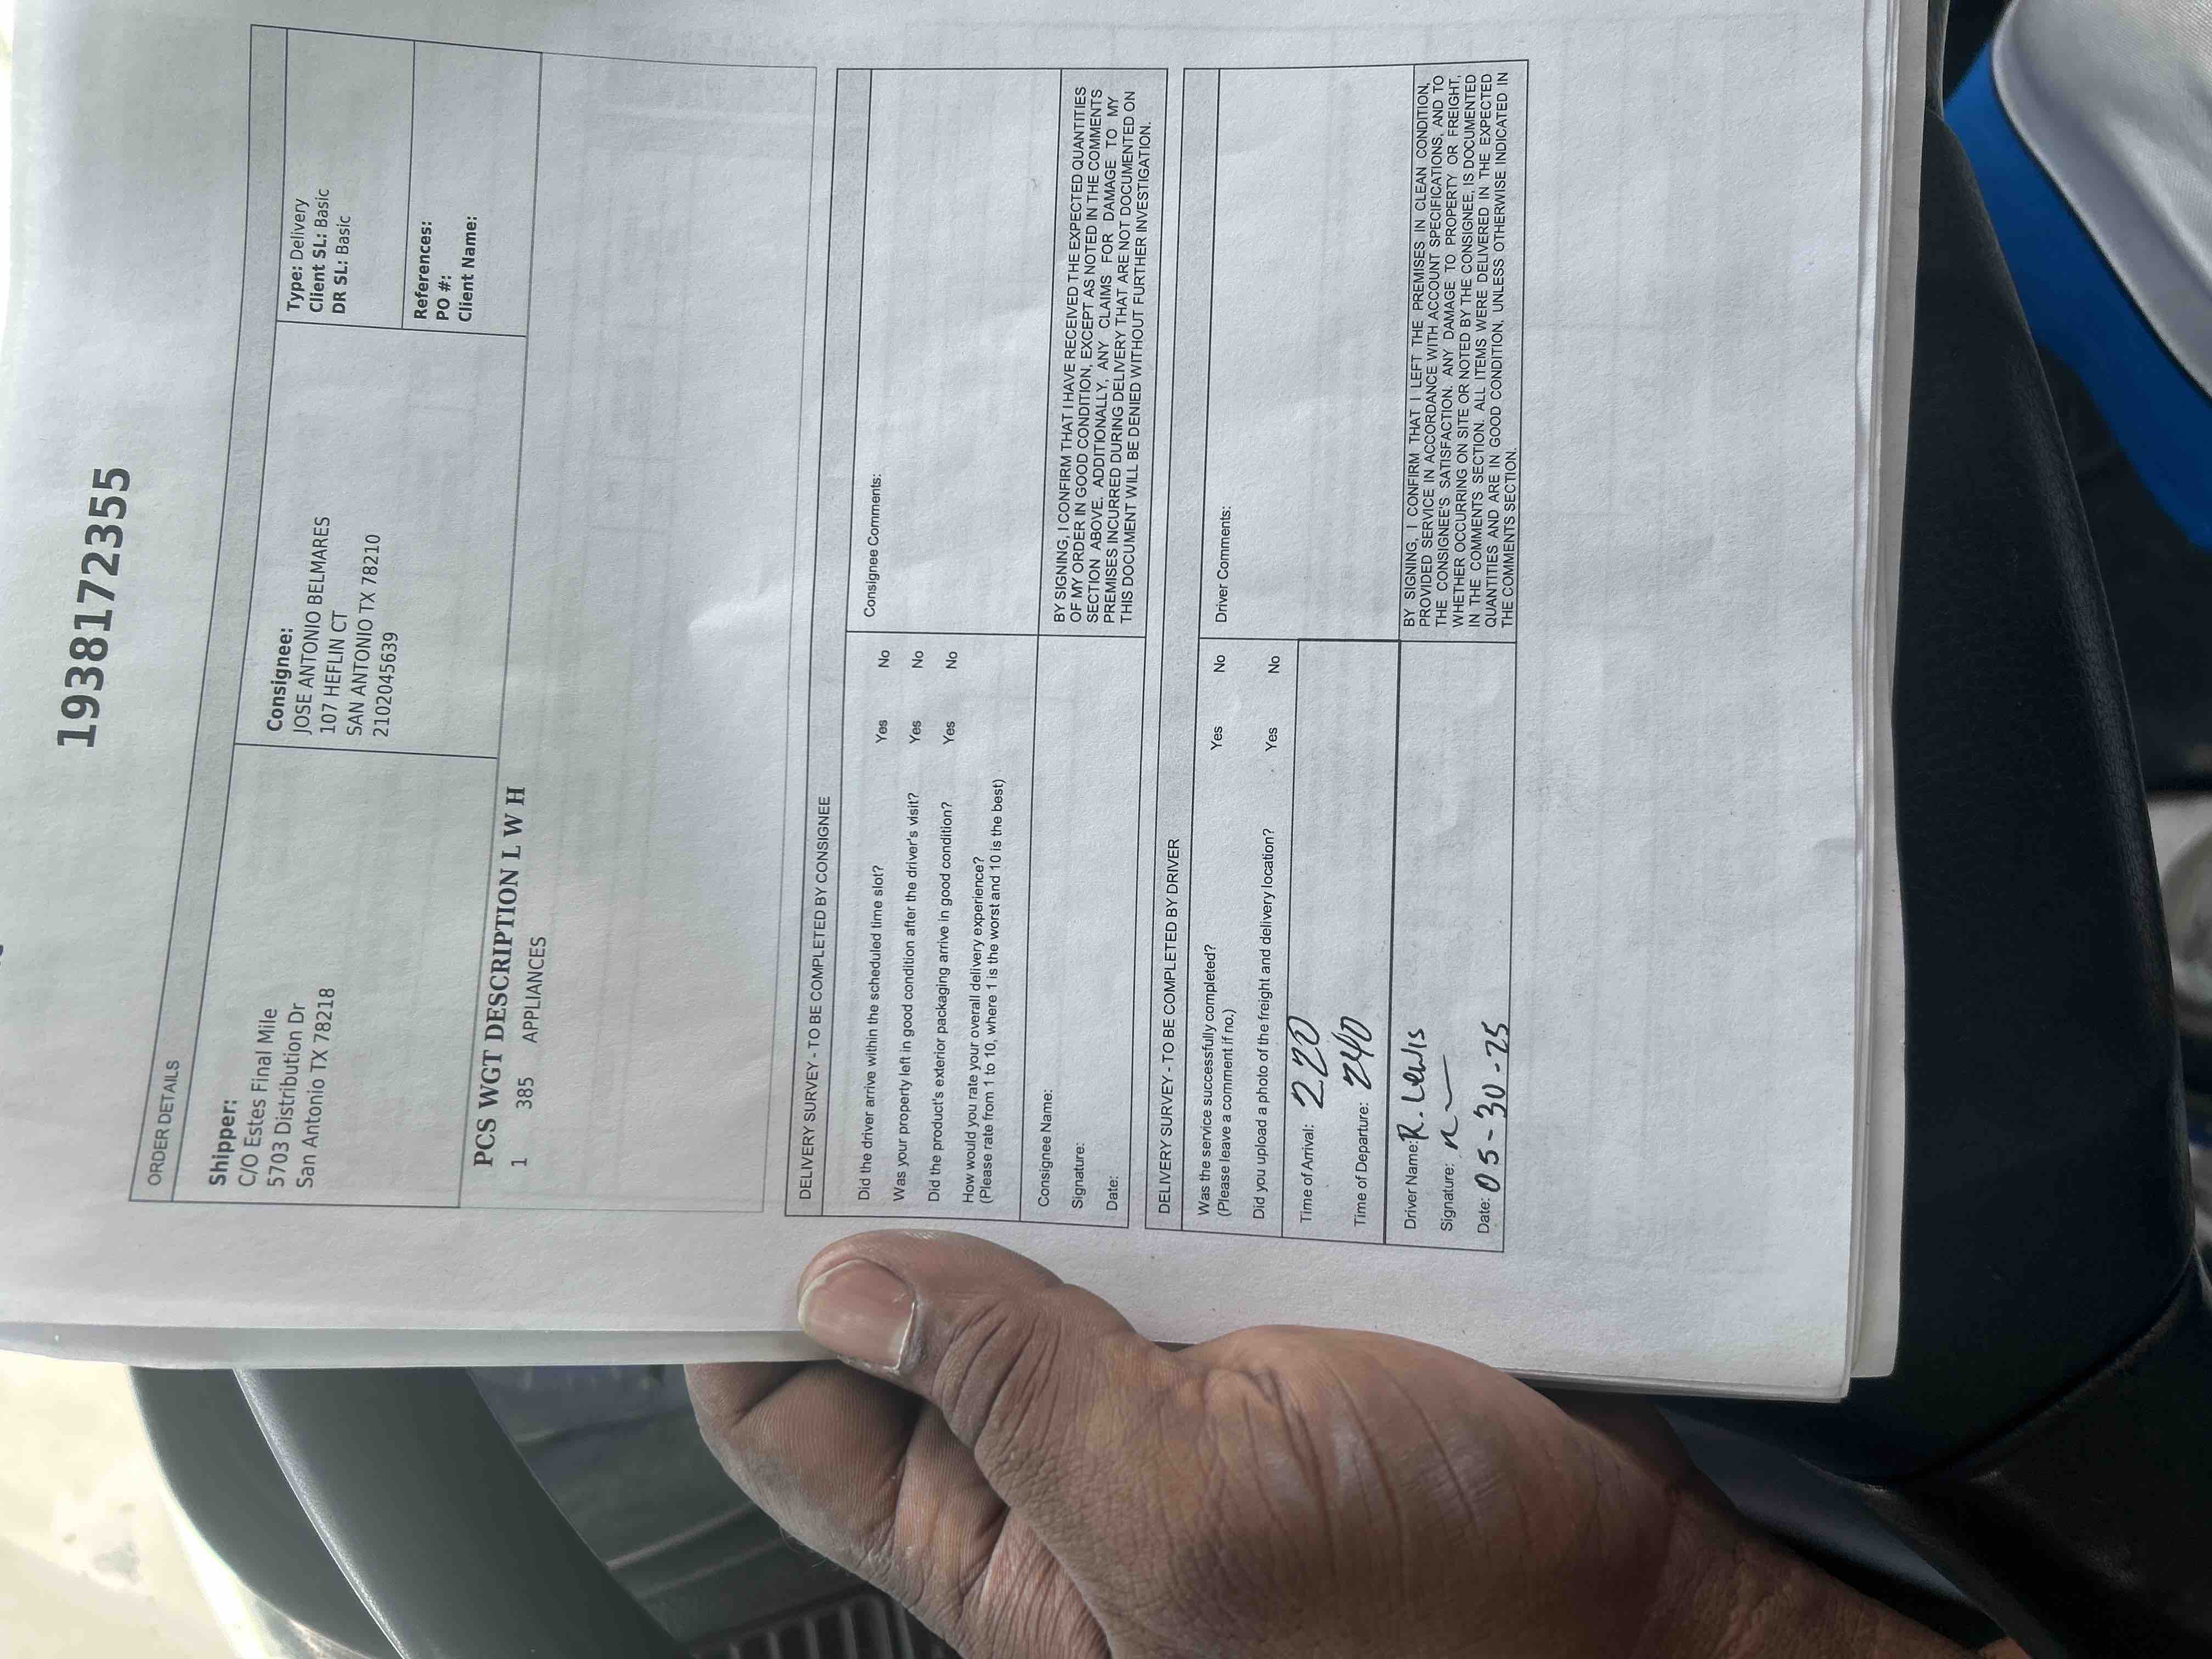 1938172355
ORDER DETAILS
Shipper:
C/O Estes Final Mile
5703 Distribution Dr
San Antonio TX 78218
Consignee:
JOSE ANTONIO BELMARES
107 HEFLIN CT
SAN ANTONIO TX 78210
2102045639
Type: Delivery
Client SL: Basic
DR SL: Basic
References:
PO #:
Client Name:
PCS WGT DESCRIPTION L W H
1 385 APPLIANCES
DELIVERY SURVEY - TO BE COMPLETED BY CONSIGNEE
Did the driver arrive within the scheduled time slot? Yes No
Was your property left in good condition after the driver's visit? Yes No
Did the product's exterior packaging arrive in good condition? Yes No
How would you rate your overall delivery experience?
(Please rate from 1 to 10, where 1 is the worst and 10 is the best)
Consignee Comments:
Consignee Name:
Signature:
Date:
BY SIGNING, I CONFIRM THAT I HAVE RECEIVED THE EXPECTED QUANTITIES
OF MY ORDER IN GOOD CONDITION, EXCEPT AS NOTED IN THE COMMENTS
SECTION ABOVE. ADDITIONALLY, ANY CLAIMS FOR DAMAGE TO MY
PREMISES INCURRED DURING DELIVERY THAT ARE NOT DOCUMENTED ON
THIS DOCUMENT WILL BE DENIED WITHOUT FURTHER INVESTIGATION.
DELIVERY SURVEY - TO BE COMPLETED BY DRIVER
Was the service successfully completed? Yes No
(Please leave a comment if no.)
Did you upload a photo of the freight and delivery location? Yes No
Driver Comments:
Time of Arrival: 220
Time of Departure: 240
Driver Name: R. Lewis
Signature:
Date: 05-30-25
BY SIGNING, I CONFIRM THAT I LEFT THE PREMISES IN CLEAN CONDITION,
PROVIDED SERVICE IN ACCORDANCE WITH ACCOUNT SPECIFICATIONS, AND TO
THE CONSIGNEE'S SATISFACTION. ANY DAMAGE TO PROPERTY OR FREIGHT,
WHETHER OCCURRING ON SITE OR NOTED BY THE CONSIGNEE, IS DOCUMENTED
IN THE COMMENTS SECTION. ALL ITEMS WERE DELIVERED IN THE EXPECTED
QUANTITIES AND ARE IN GOOD CONDITION, UNLESS OTHERWISE INDICATED IN
THE COMMENTS SECTION.